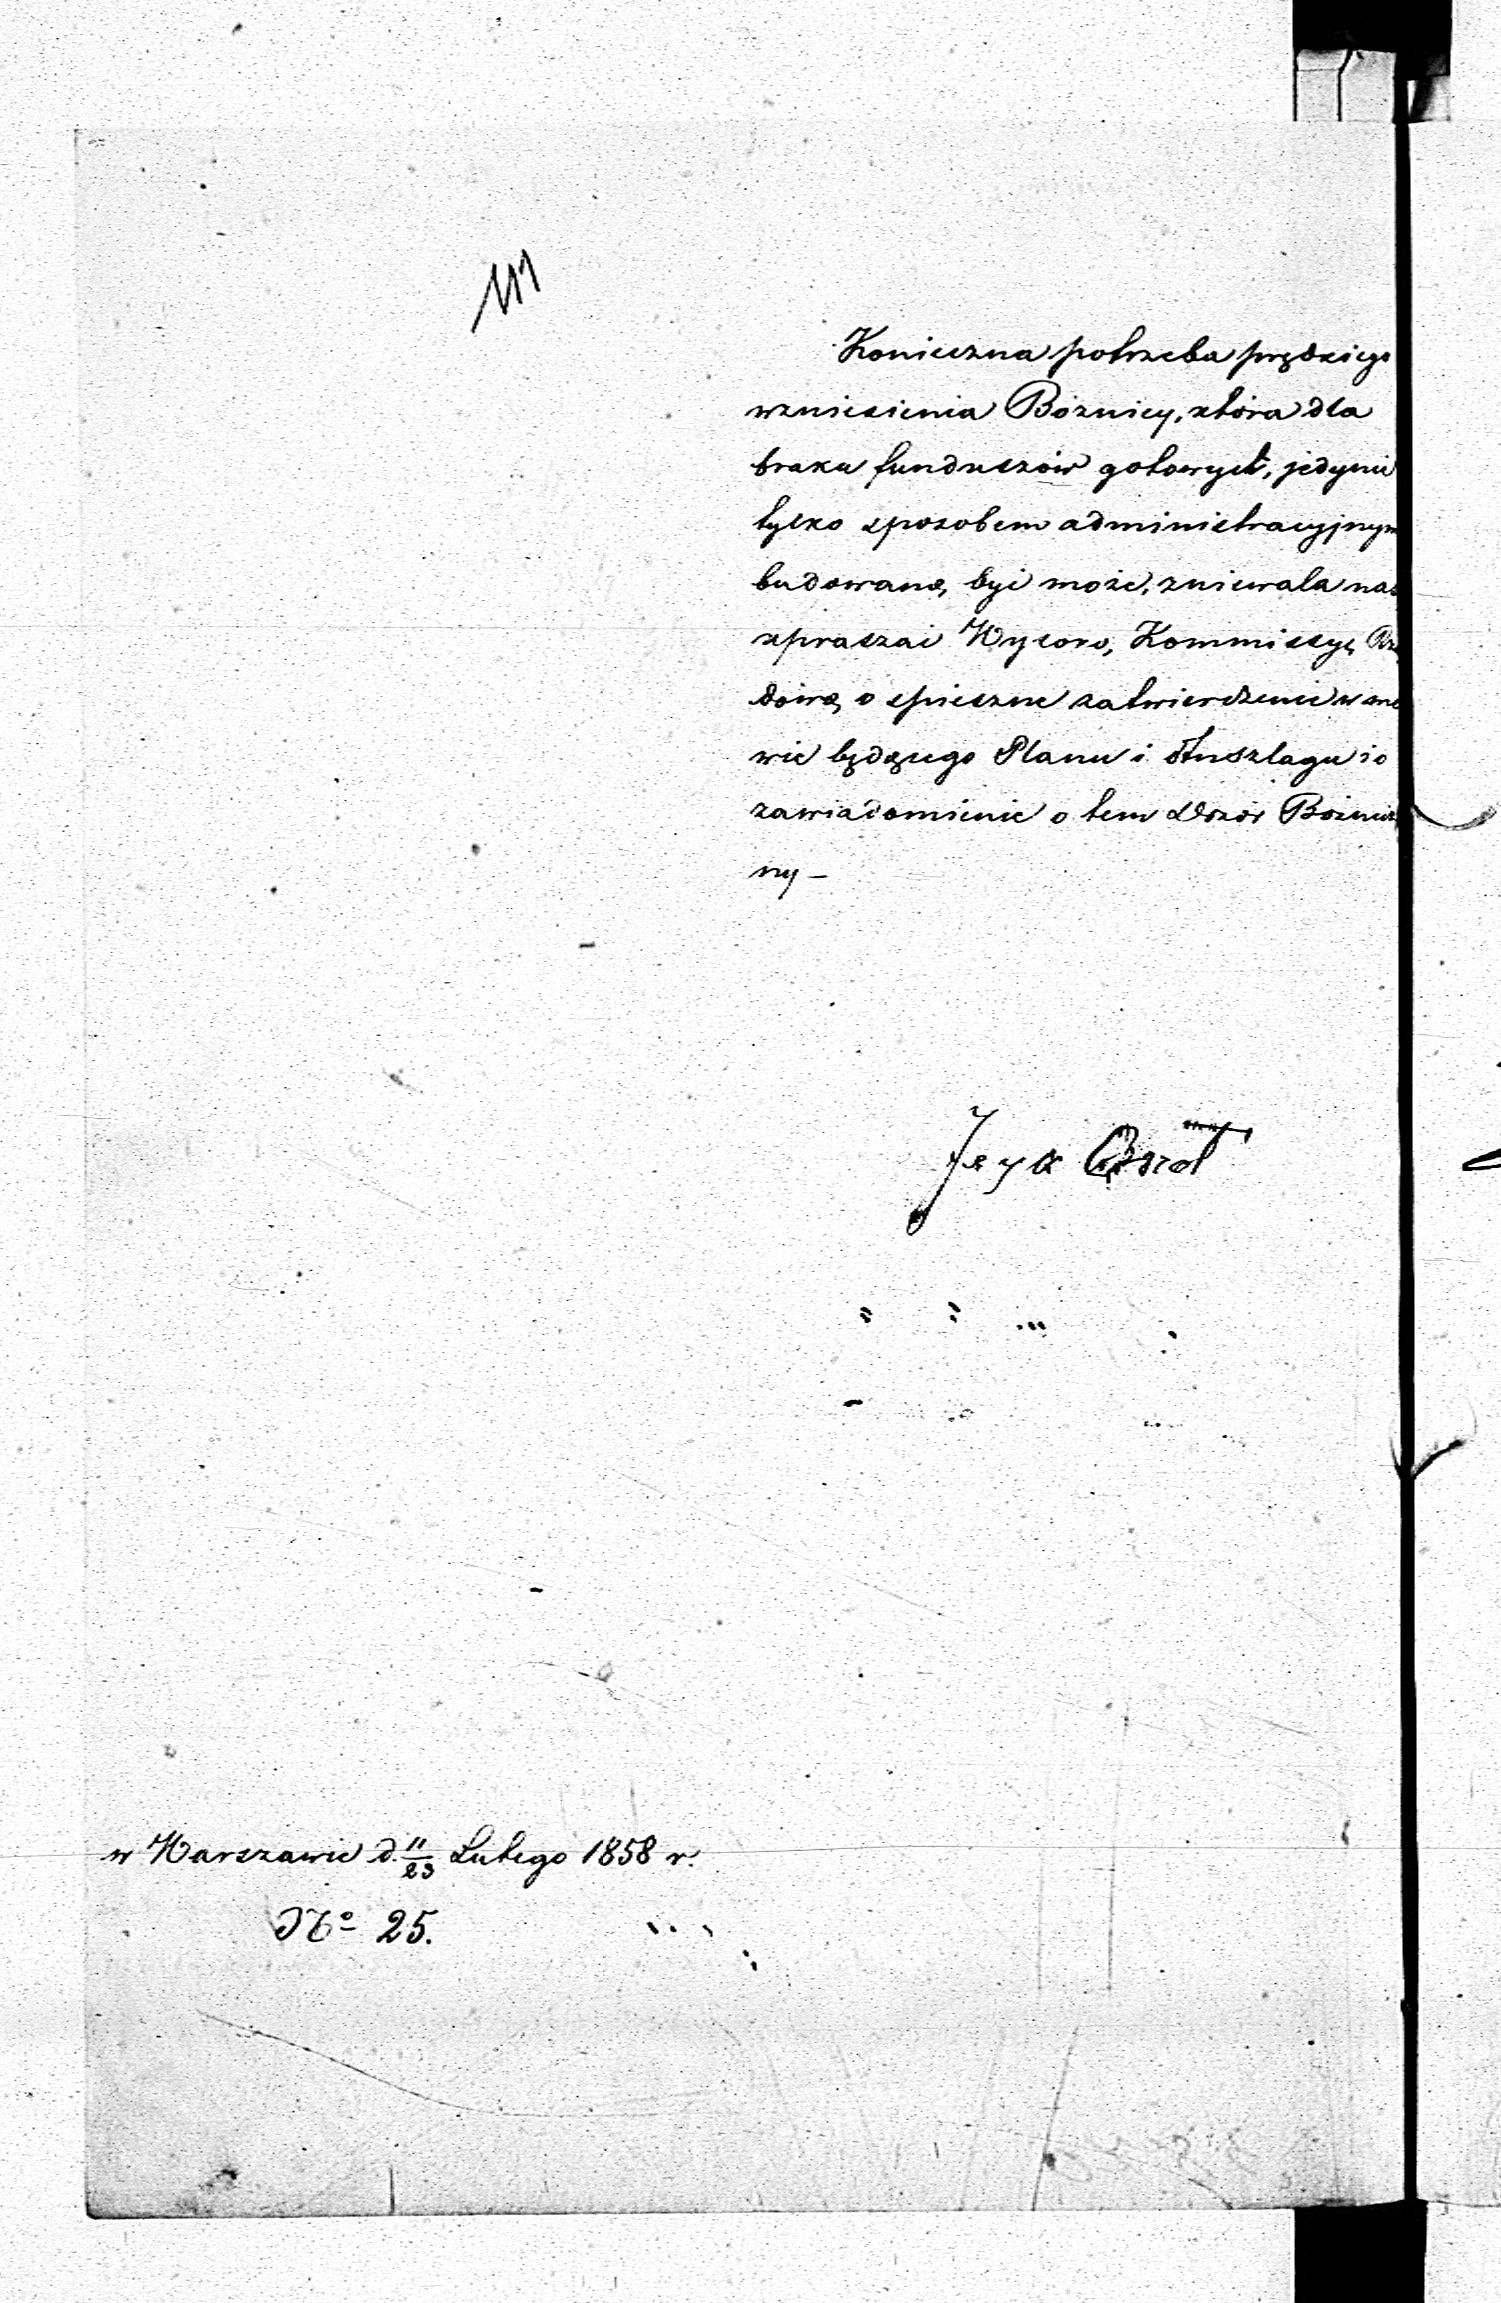 111
Konieczna potrzeba prędkiego
wzniesienia Bóżnicy, która dla
braku funduszów gotowych, jedynie
tylko sposobem administracyjnym
budowaną być może, zniewala nas
upraszać Wysoką Kommissyę Rzą
dową o spieszne zatwierdzenie w mo
wie będącego Planu i Anszlagu i o
zawiadomienie o tem Dozór Bóżnicz
ny —
w Warszawie d. 11/23 Lutego 1858 r.
No 25.